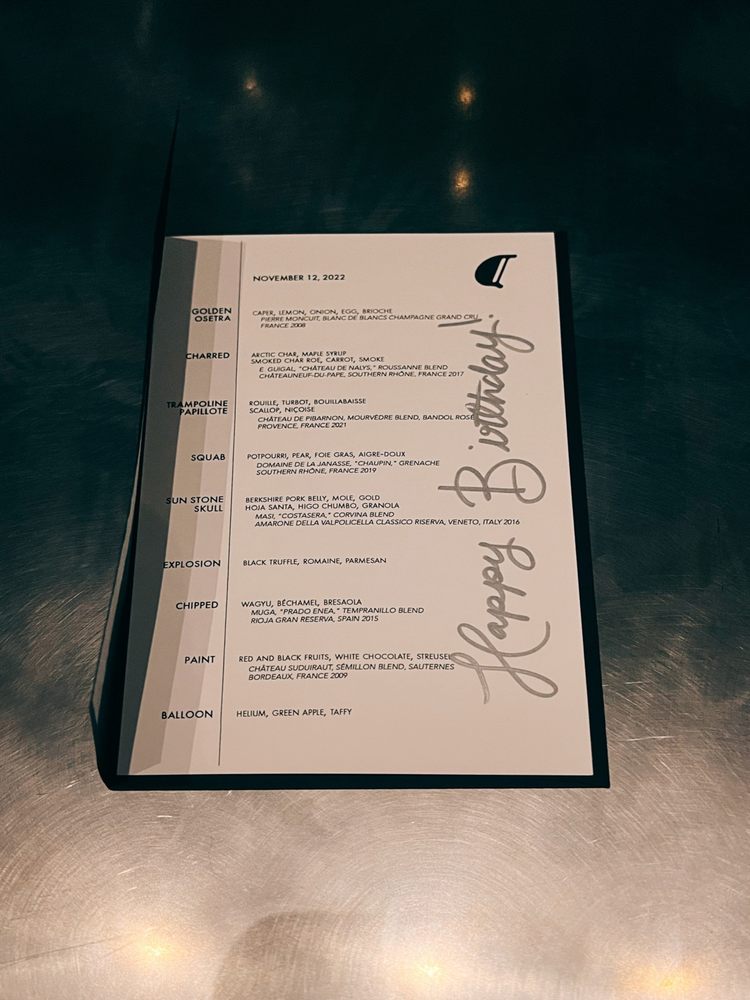 NOVEMBER 12, 2022
GOLDEN
OSETRA
CAPER, LEMON, ONION, EGG, BRIOCHE
PIERRE MONCUIT, BLANC DE BLANCS CHAMPAGNE GRAND CRU
FRANCE 2008
CHARRED
ARCTIC CHAR, MAPLE SYRUP
SMOKED CHAR ROE, CARROT, SMOKE
E. GUIGAL, "CHÂTEAU DE NALYS," ROUSSANNE BLEND
CHÂTEAUNEUF-DU-PAPE, SOUTHERN RHÔNE, FRANCE 2017
TRAMPOLINE
PAPILLOTE
ROUILLE, TURBOT, BOUILLABAISSE
SCALLOP, NIÇOISE
CHÂTEAU DE PIBARNON, MOURVÈDRE BLEND, BANDOL ROSÉ
PROVENCE, FRANCE 2021
SQUAB
POTPOURRI, PEAR, FOIE GRAS, AIGRE-DOUX
DOMAINE DE LA JANASSE, "CHAUPIN," GRENACHE
SOUTHERN RHÔNE, FRANCE 2019
SUN STONE
SKULL
BERKSHIRE PORK BELLY, MOLE, GOLD
HOJA SANTA, HIGO CHUMBO, GRANOLA
MASI, "COSTASERA," CORVINA BLEND
AMARONE DELLA VALPOLICELLA CLASSICO RISERVA, VENETO, ITALY 2016
EXPLOSION
BLACK TRUFFLE, ROMAINE, PARMESAN
CHIPPED
WAGYU, BÉCHAMEL, BRESAOLA
MUGA, "PRADO ENEA," TEMPRANILLO BLEND
RIOJA GRAN RESERVA, SPAIN 2015
PAINT
RED AND BLACK FRUITS, WHITE CHOCOLATE, STREUSEL
CHÂTEAU SUDUIRAUT, SÉMILLON BLEND, SAUTERNES
BORDEAUX, FRANCE 2009
BALLOON
HELIUM, GREEN APPLE, TAFFY
Happy Birthday!